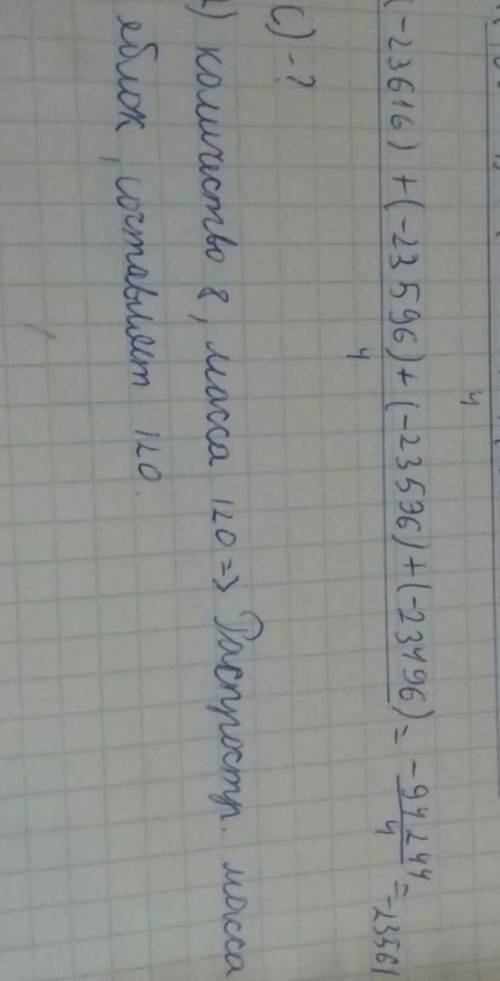 (-23616) + (-23596) + (-23536) + (-23496) = -94244 = -23561
4
4
4
c) - ?
) количество 8, масса 120 => Распростр. масса
яблок, составляет 120.